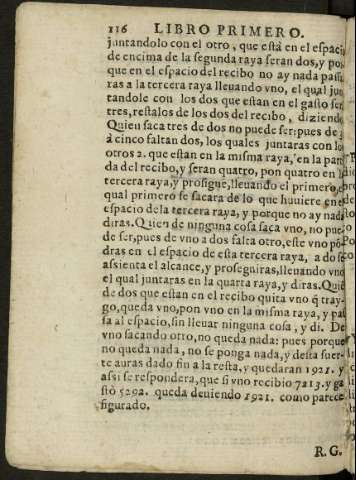 116 LIBRO PRIMERO.
juntandolo con el otro, que està en el espacio
de encima de la segunda raya seran dos, y por
que en el espacio del recibo no ay nada passa
ras a la tercera raya lleuando vno, el qual jun
tandole con los dos que estan en el gasto ser
tres, restalos de los dos del recibo, diziendo
Quien saca tres de dos no puede ser: pues de 3
à cinco faltan dos, los quales juntaras con lo
otros 2. que estàn en la misma raya, en la par
da del recibo, y seran quatro, pon quatro en
tercera raya, y prosigue, lleuando el primero,
qual primero se sacara de lo que huuiere en
espacio de la tercera raya, y porque no ay nada
diras. Quien de ninguna cosa saca vno, no pue
de ser, pues de vno a dos falta otro, este vno pō
dras en el espacio de esta tercera raya, a do se
assienta el alcance, y proseguiras, lleuando vno
el qual juntaras en la quarta raya, y diras. Quiē
de dos que estan en el recibo quita vno q̃ tray-
go, queda vno, pon vno en la misma raya, y pas
sa al espacio, sin lleuar ninguna cosa, y di. De
vno sacando otro, no queda nada: pues porque
no queda nada, no se ponga nada, y desta suer-
te auras dado fin a la resta, y quedaran 1921. y
assi se respondera, que si vno recibio 7213. y ga
stò 5292. queda deuiendo 1921. como parece
figurado.
R. G.